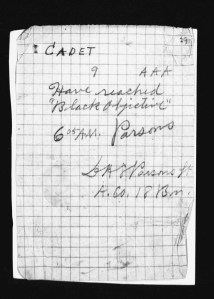 29
CADET
9 AAA
Have reached
"Black Objective"
6 05 AM. Parsons
Parsons Lt
K. Co. 18 Bn.